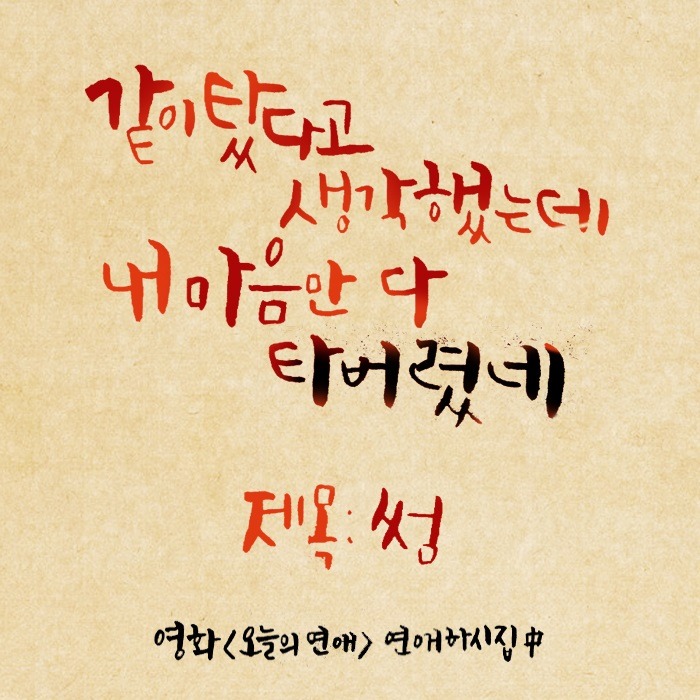 같이 탔다고
생각했는데
내 마음만 다
타버렸네
제목: 썸
영화 <오늘의 연애> 연애하시집 中